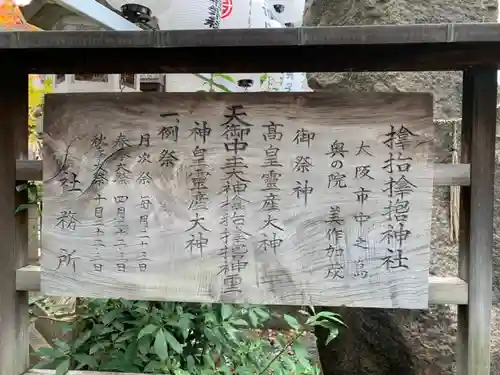 神社
大阪市中之島
奥の院 美作加茂
御祭神
高皇靈産大神
天御中主大神
神皇靈産大神
一例祭
月次祭 毎月二十三日
春大祭 四月二十二、三日
秋大祭 十月二十二、三日
社務所